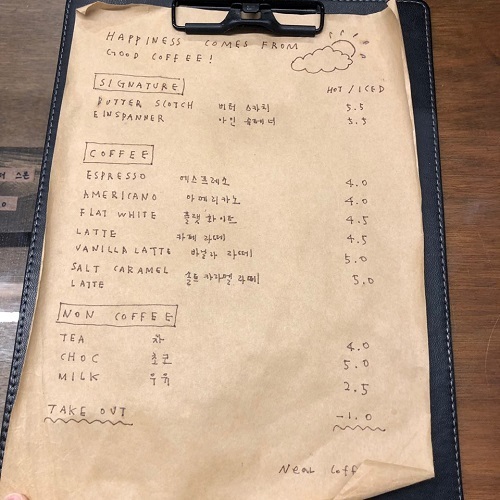 HAPPINESS COMES FROM
GOOD COFFEE!
SIGNATURE HOT / ICED
BUTTER SCOTCH 버터 스카치 5.5
EINSPANNER 아인 슈페너 5.5
COFFEE
ESPRESSO 에스프레소 4.0
AMERICANO 아메리카노 4.0
FLAT WHITE 플랫 화이트 4.5
LATTE 카페 라떼 4.5
VANILLA LATTE 바닐라 라떼 5.0
SALT CARAMEL 솔트 카라멜 라떼 5.0
LATTE
NON COFFEE
TEA 차 4.0
CHOC 초코 5.0
MILK 우유 2.5
TAKE OUT -1.0